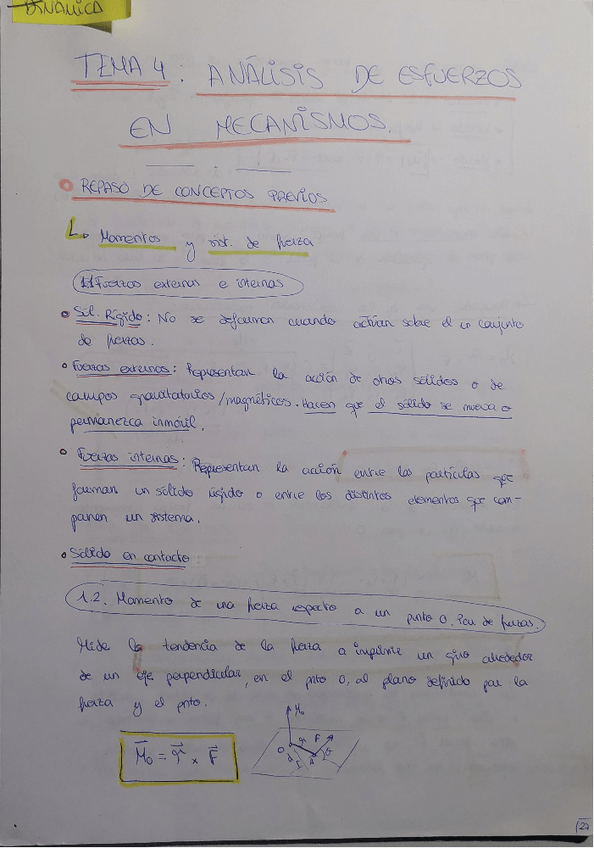 DINÁMICA
TEMA 4: ANÁLISIS DE ESFUERZOS
EN MECANISMOS.
REPASO DE CONCEPTOS PREVIOS
Momentos y not. de fuerza
1.1 Fuerzas externas e internas
Sol. Rígido: No se deforman cuando actúan sobre el un conjunto
de fuerzas.
Fuerzas externas: Representan la acción de otros sólidos o de
campos gravitatorios/magnéticos. Hacen que el sólido se mueva o
permanezca inmóvil.
Fuerzas internas: Representan la acción entre las partículas que
forman un sólido rígido o entre los distintos elementos que com-
ponen un sistema.
Sólido en contacto
1.2. Momento de una fuerza respecto a un punto O. Par de fuerzas.
Mide la tendencia de la fuerza a imprimir un giro alrededor
de un eje perpendicular, en el pnto O, al plano definido por la
fuerza y el pnto.
M₀ = r x F
M₀
O r F
d A
(2)